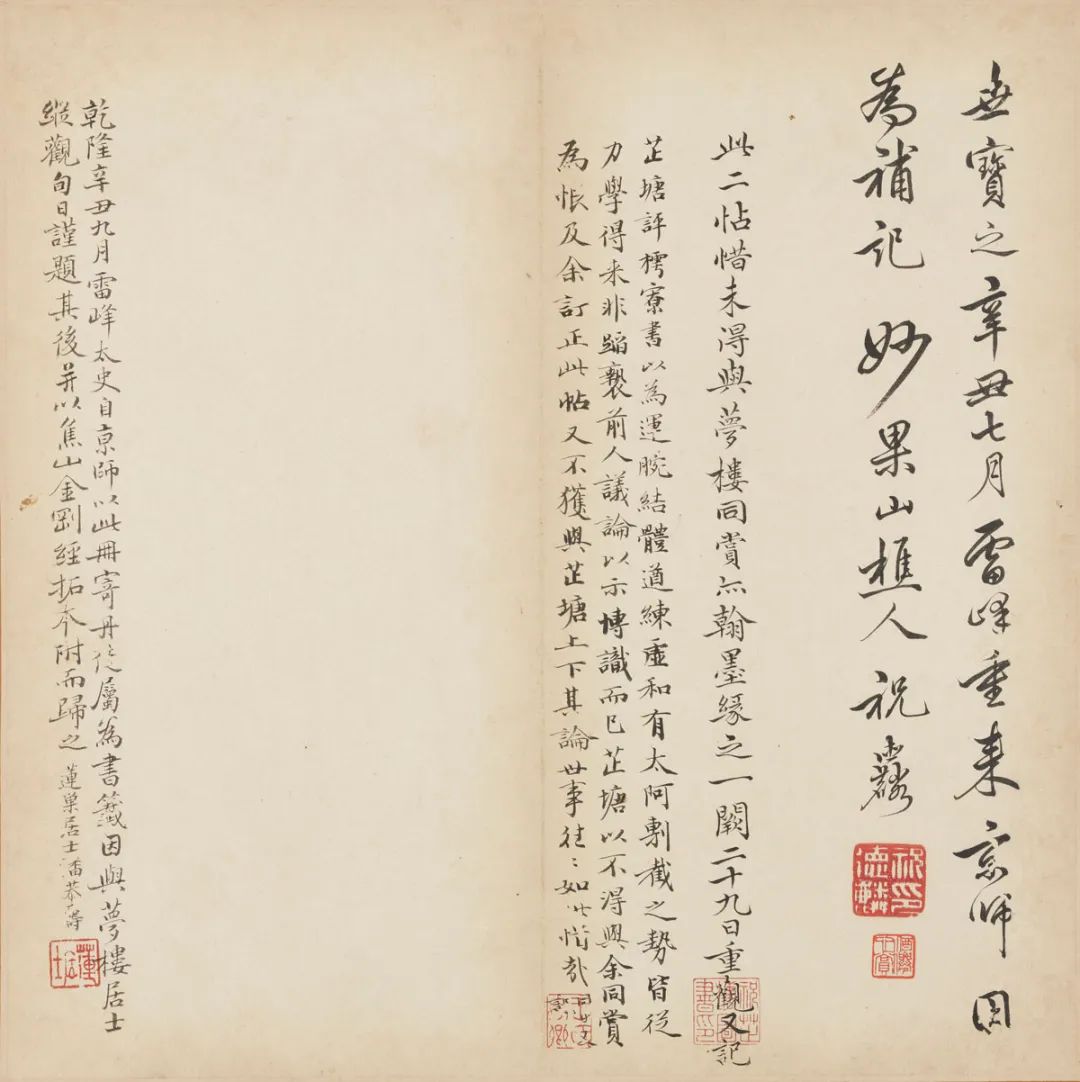 無寶之辛丑七月雷峰重来京师因
為補記 妙果山樵人祝麟
此二帖惜未得與夢樓同賞亦翰墨緣之一闕二十九日重觀又記
芷塘評樗寮書以為運腕結體遒練虚和有太阿剸截之勢皆從
力學得来非蹈襲前人議論以示博識而已芷塘以不得與余同賞
為悵及余訂正此帖又不獲與芷塘上下其論世事往〻如此惜哉
乾隆辛丑九月雷峰太史自京師以此冊寄丹徒屬為書籤因與夢樓居士
縱觀旬日謹題其後并以焦山金剛經拓本附而歸之 蓮巢居士潘恭壽